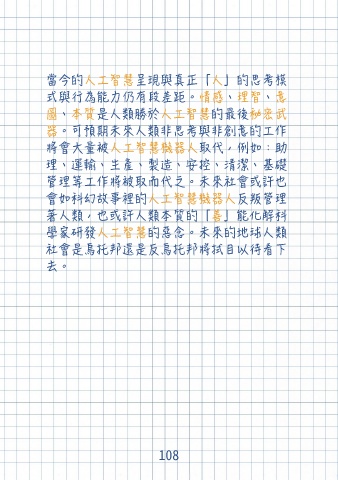 當今的人工智慧呈現與真正「人」的思考模
式與行為能力仍有段差距。情感、理智、意
圖、本質是人類勝於人工智慧的最後秘密武
器。可預期未來人類非思考與非創意的工作
將會大量被人工智慧機器人取代，例如：助
理、運輸、生產、製造、安控、清潔、基礎
管理等工作將被取而代之。未來社會或許也
會如科幻故事裡的人工智慧機器人反叛管理
著人類，也或許人類本質的「善」能化解科
學家研發人工智慧的惡念。未來的地球人類
社會是烏托邦還是反烏托邦將拭目以待看下
去。
108